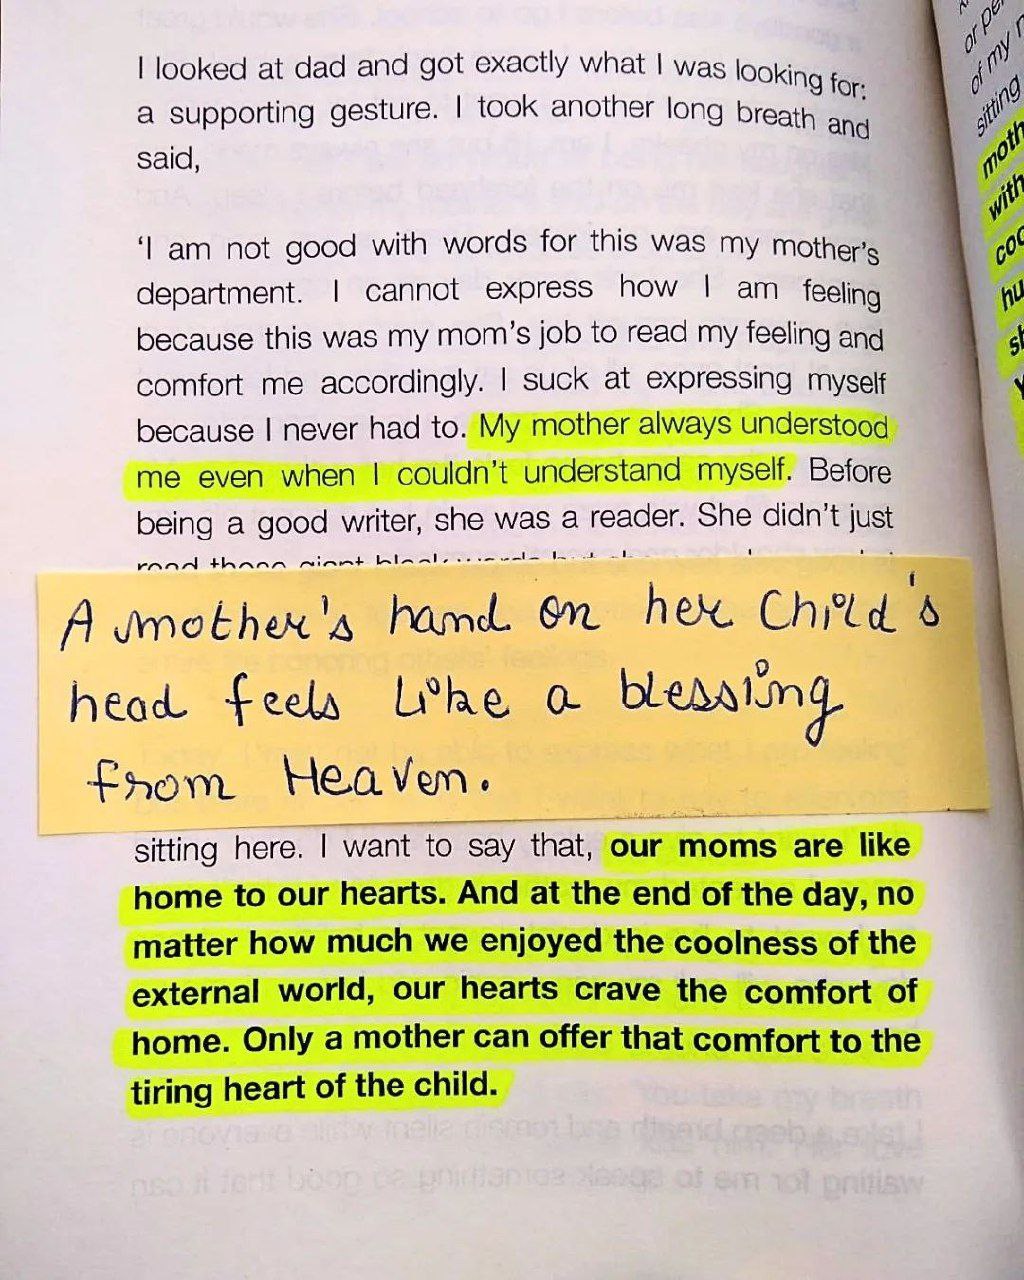 I looked at dad and got exactly what I was looking for:
a supporting gesture. I took another long breath and
said,
‘I am not good with words for this was my mother’s
department. I cannot express how I am feeling
because this was my mom’s job to read my feeling and
comfort me accordingly. I suck at expressing myself
because I never had to. My mother always understood
me even when I couldn’t understand myself. Before
being a good writer, she was a reader. She didn’t just
A mother's hand on her Child's
head feels like a blessing
from Heaven.
sitting here. I want to say that, our moms are like
home to our hearts. And at the end of the day, no
matter how much we enjoyed the coolness of the
external world, our hearts crave the comfort of
home. Only a mother can offer that comfort to the
tiring heart of the child.
of my
sitting
with